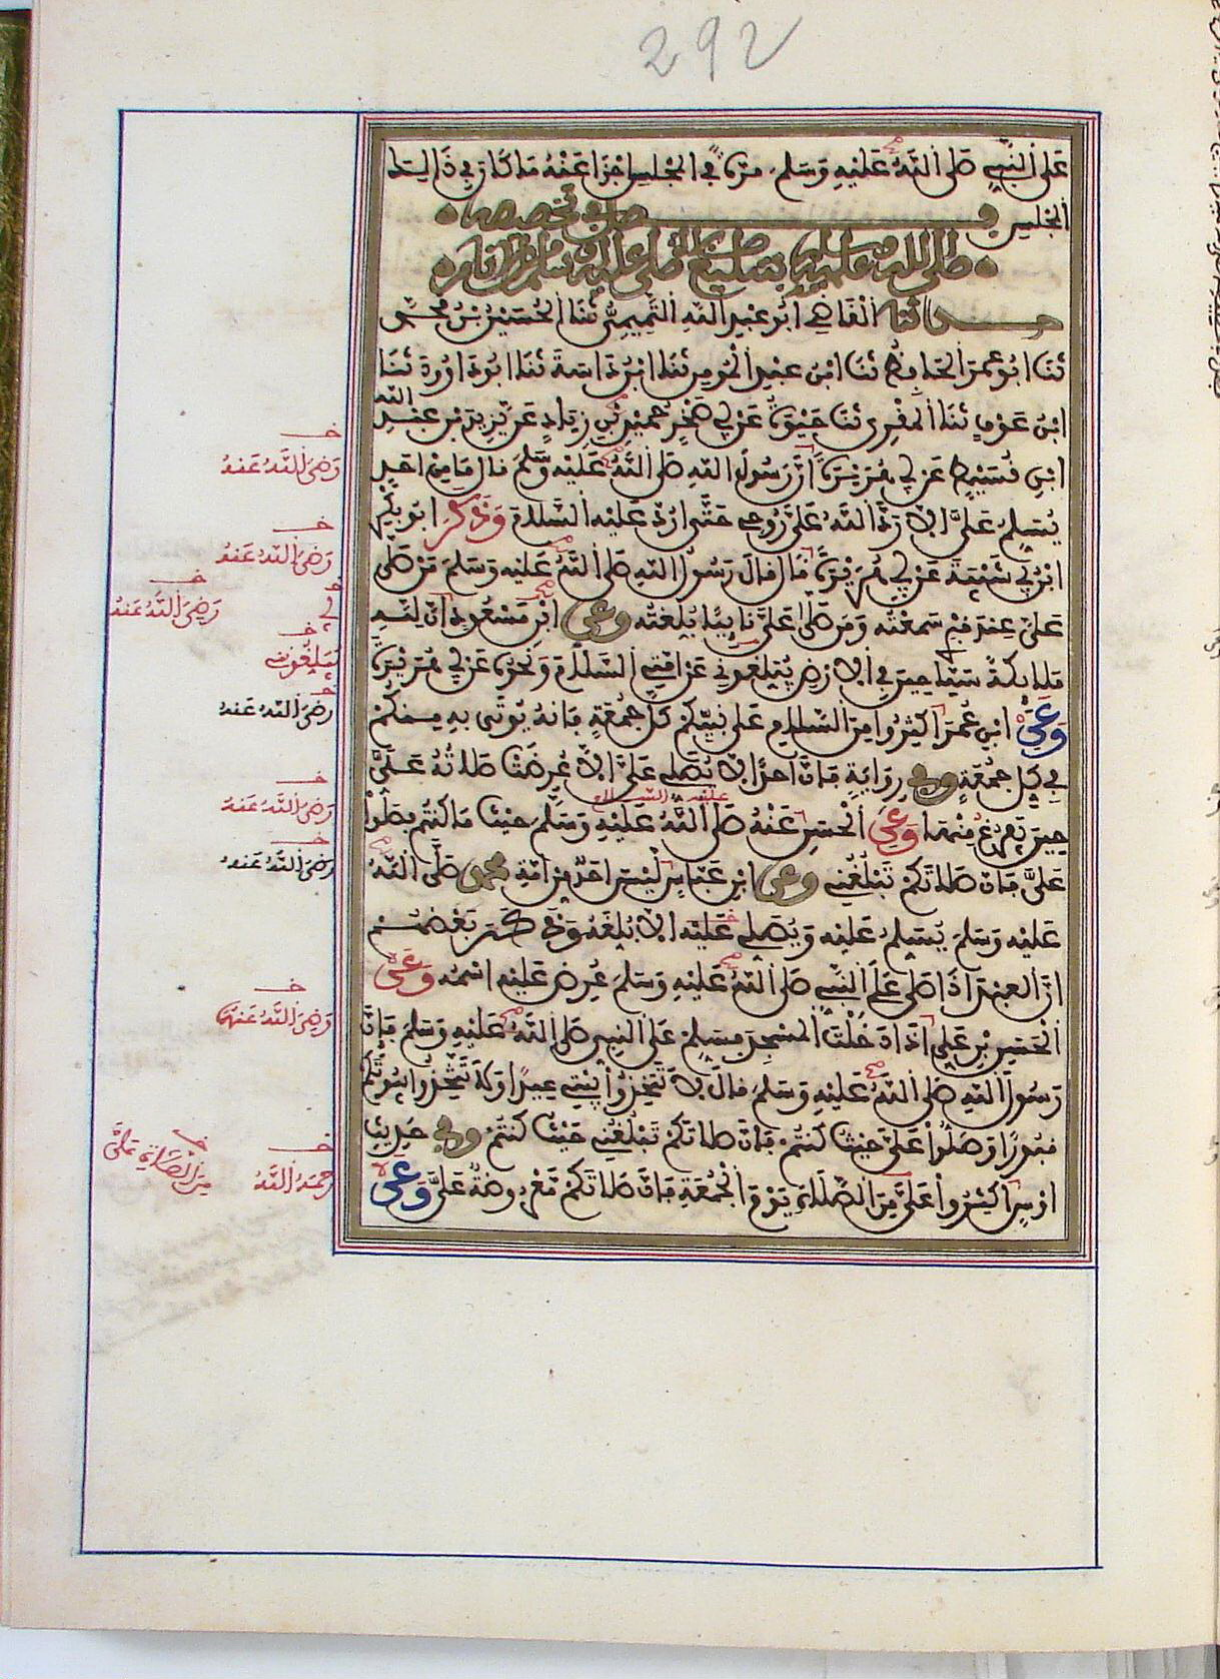 292
عَلَى النَّبِيِّ صَلَّى اللَّهُ عَلَيْهِ وَسَلَّمَ مَرَّةً فِي الْمَجْلِسِ أَجْزَأَ عَنْهُ مَا كَانَ فِي ذَلِكَ
الْمَجْلِسِ فصل في تخصيصه
صلى الله عليه وسلم بتبليغ صلاة من صلى عليه وسلم من الانام
حدثنا الْقَاضِي أَبُو عَبْدِ اللَّهِ التَّمِيمِيُّ ثَنَا الْحُسَيْنُ بْنُ مُحَمَّدٍ
ثَنَا أَبُو عُمَرَ الْحَافِظُ ثَنَا ابْنُ عَبْدِ الْمُومِنِ ثَنَا ابْنُ دَاسَةَ ثَنَا أَبُو دَاوُدَ ثَنَا
ابْنُ عَوْفٍ ثَنَا الْمُقْرِي ثَنَا حَيْوَةُ عَنْ أَبِي صَخْرٍ حُمَيْدِ بْنِ زِيَادٍ عَنْ يَزِيدَ بْنِ عَبْدِ اللَّهِ
ابْنِ قُسَيْطٍ عَنْ أَبِي هُرَيْرَةَ أَنَّ رَسُولَ اللَّهِ صَلَّى اللَّهُ عَلَيْهِ وَسَلَّمَ قَالَ مَا مِنْ أَحَدٍ
يُسَلِّمُ عَلَيَّ إِلَّا رَدَّ اللَّهُ عَلَيَّ رُوحِي حَتَّى أَرُدَّ عَلَيْهِ السَّلَامَ وَذَكَرَ أَبُو بَكْرِ
ابْنُ أَبِي شَيْبَةَ عَنْ أَبِي هُرَيْرَةَ قَالَ قَالَ رَسُولُ اللَّهِ صَلَّى اللَّهُ عَلَيْهِ وَسَلَّمَ مَنْ صَلَّى
عَلَيَّ عِنْدَ قَبْرِي سَمِعْتُهُ وَمَنْ صَلَّى عَلَيَّ نَائِيًا بُلِّغْتُهُ وعن ابْنِ مَسْعُودٍ أَنَّ لِلَّهِ
مَلَائِكَةً سَيَّاحِينَ فِي الْأَرْضِ يُبَلِّغُونِي عَنْ أُمَّتِي السَّلَامَ وَنَحْوُهُ عَنْ أَبِي هُرَيْرَةَ
وَعَنِ ابْنِ عُمَرَ أَكْثِرُوا مِنَ السَّلَامِ عَلَى نَبِيِّكُمْ كُلَّ جُمُعَةٍ فَإِنَّهُ يُوتَى بِهِ مِنْكُمْ
فِي كُلِّ جُمُعَةٍ وفي رِوَايَةٍ فَإِنَّ أَحَدًا لَا يُصَلِّي عَلَيَّ إِلَّا عُرِضَتْ صَلَاتُهُ عَلَيَّ
حِينَ يَفْرُغُ مِنْهَا وَعَنِ الْحَسَنِ عَنْهُ صَلَّى اللَّهُ عَلَيْهِ وَسَلَّمَ حَيْثُ مَا كُنْتُمْ فَصَلُّوا
عليه السلام
عَلَيَّ فَإِنَّ صَلَاتَكُمْ تَبْلُغُنِي وعن ابْنِ عَبَّاسٍ لَيْسَ أَحَدٌ مِنْ أُمَّةِ محمد صَلَّى اللَّهُ
عَلَيْهِ وَسَلَّمَ يُسَلِّمُ عَلَيْهِ وَيُصَلِّي عَلَيْهِ إِلَّا بُلِّغَهُ وَذَكَرَ بَعْضُهُمْ
أَنَّ الْعَبْدَ إِذَا صَلَّى عَلَى النَّبِيِّ صَلَّى اللَّهُ عَلَيْهِ وَسَلَّمَ عُرِضَ عَلَيْهِ اسْمُهُ وَعَنِ
الْحَسَنِ بْنِ عَلِيٍّ إِذَا دَخَلْتَ الْمَسْجِدَ فَسَلِّمْ عَلَى النَّبِيِّ صَلَّى اللَّهُ عَلَيْهِ وَسَلَّمَ فَإِنَّ
رَسُولَ اللَّهِ صَلَّى اللَّهُ عَلَيْهِ وَسَلَّمَ قَالَ لَا تَتَّخِذُوا بَيْتِي عِيدًا وَلَا تَتَّخِذُوا بُيُوتَكُمْ
قُبُورًا وَصَلُّوا عَلَيَّ حَيْثُ كُنْتُمْ فَإِنَّ صَلَاتَكُمْ تَبْلُغُنِي حَيْثُ كُنْتُمْ وفي حَدِيثِ
أَوْسٍ أَكْثِرُوا عَلَيَّ مِنَ الصَّلَاةِ يَوْمَ الْجُمُعَةِ فَإِنَّ صَلَاتَكُمْ مَعْرُوضَةٌ عَلَيَّ وَعَنْ
رَضِيَ اللَّهُ عَنْهُ
رَضِيَ اللَّهُ عَنْهُ
لي رَضِيَ اللَّهُ عَنْهُ
يُبَلِّغُونَ
رَضِيَ اللَّهُ عَنْهُ
رَضِيَ اللَّهُ عَنْهُ
رَضِيَ اللَّهُ عَنْهُ
رَضِيَ اللَّهُ عَنْهُمَا
رَحِمَهُ اللَّهُ مِنَ الصَّلَاةِ عَلَيَّ